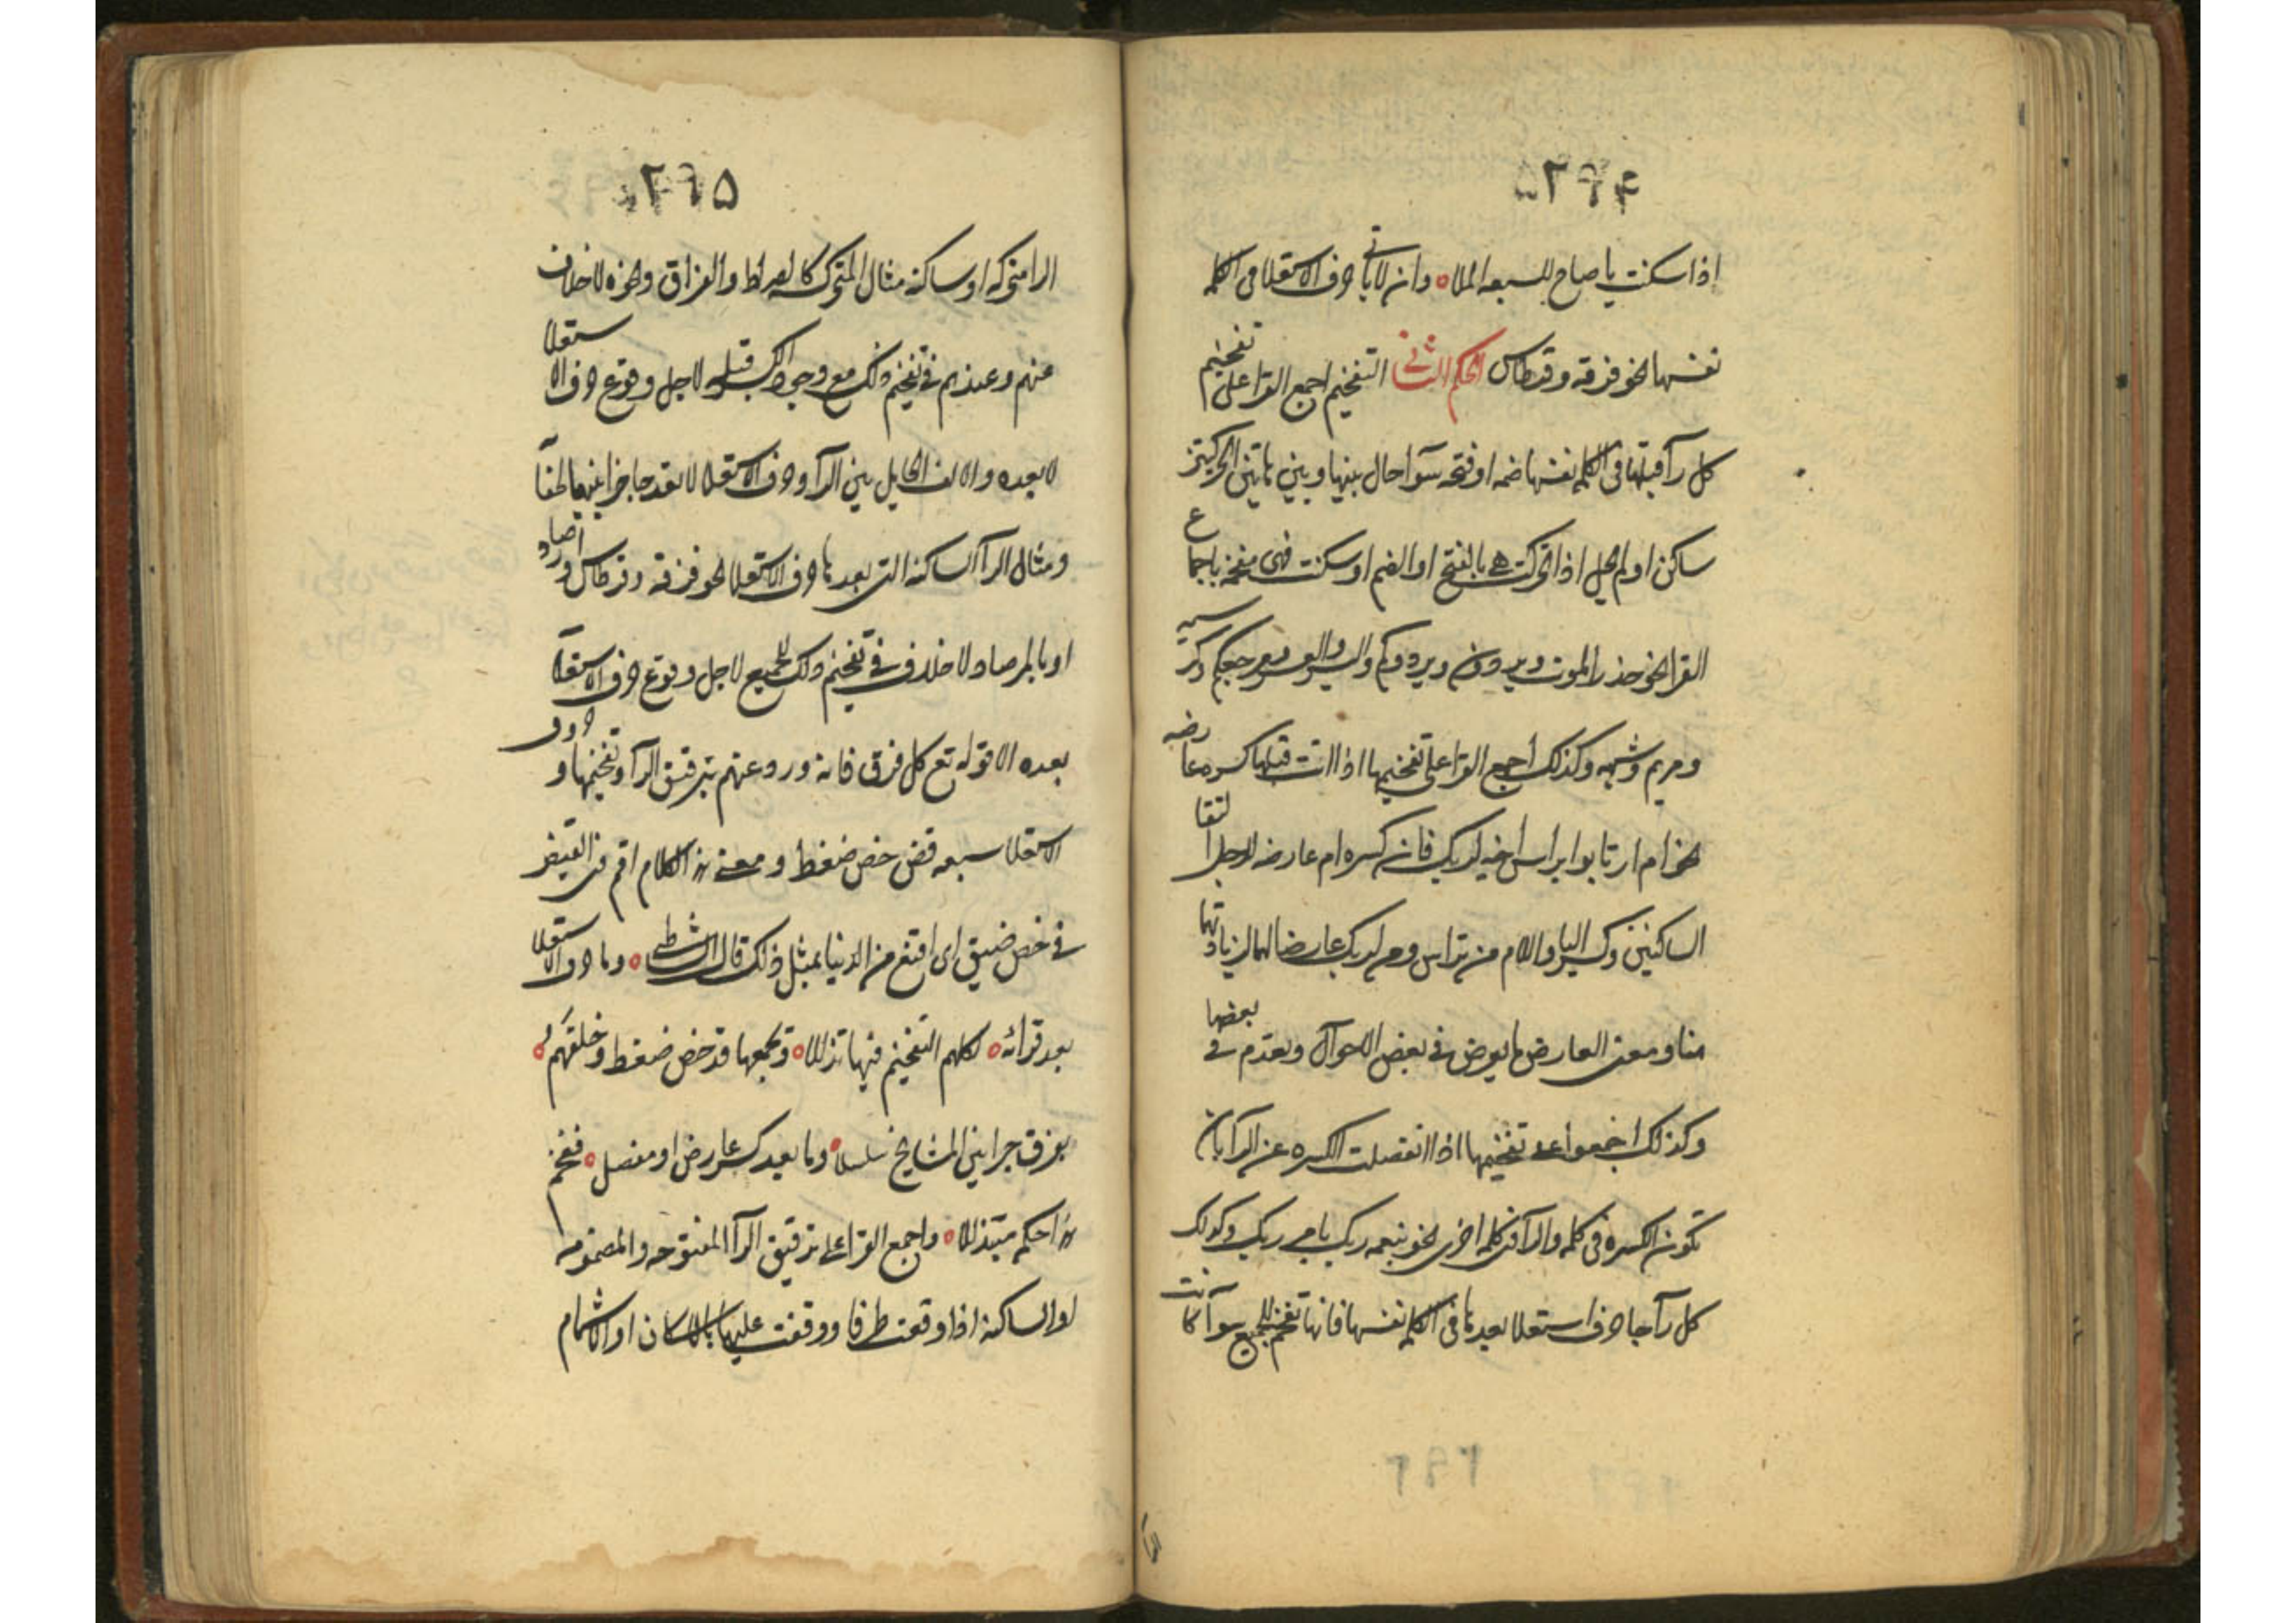 ٢٩٤
اذا سكنت يا صاح للسبعه الملا ٥ وان لا ياتي حرف الاستعلا في الكلمه
نفسها نحو فرقه وقرطاس الحكم الثاني التفخيم اجمع القرا على تفخيم
كل رآ قبلها في الكلمه نفسها ضمه او فتحه سوآ حال بينها وبين هاتين الحركتين
ساكن او لم يحل اذا تحركت هي بالفتح او الضم او سكنت فهى مفخمه باجماع
القرا نحو حذر الموت ويرون ويردوكم واليسر والعسر ومرجعكم وكرسيه
ومريم وشبهه وكذلك اجمع القرا على تفخيمها اذا اتت قبلها كسره عارضه
نحو ام ارتابوا براس اخيه لربك فان كسره ام عارضه لاجل التقا
الساكنين وكسر البا واللام من براس ومن لربك عارضا لهما لزيادتهما
هنا ومعنى العارض ما يعرض في بعض الاحوال ويعدم في بعضها
وكذلك اجمعوا على تفخيمها اذا انفصلت الكسره عن الرآ بان
تكون الكسره في كلمه والرآ في كلمه اخرى نحو بنعمه ربك بامر ربك وكذلك
كل رآ جا حرف استعلا بعدها في الكلمه نفسها فانها تفخم للجميع سوآ كانت
الرا
٢٩٥
الرا متحركه او ساكنه مثال المتحركه كالصراط والفراق ونحوه لا خلاف
عنهم وعندهم في تفخيم ذلك مع وجود الكسر قبله لاجل وقوع حرف الاستعلا
لا بعده والالف الحايل بين الرآ وحرف الاستعلا لا يعد حاجزا بينهما لخفآ
ومثال الرآ الساكنه التي بعدها حرف الاستعلا نحو فرقه وقرطاس وارصاد
او بالمرصاد لا خلاف في تفخيم ذلك للجميع لاجل وقوع حرف الاستعلآ
بعده الا قوله تع كل فرق فانه ورد عنهم بترقيق الرآ وتفخيمها وحروف
الاستعلا سبعه قض خص ضغط ومعنى هذا الكلام اقم في القيض
في خص ضيق اى اقتنع من الدنيا بمثل ذلك قال الشاطبى ٥ وما حرف الاستعلا
بعد قرائه ٥ لكلهم التفخيم فيها تذللا ٥ ويجمعها قد خص ضغط وخلفهم ٥
بفرق جرا بين المشايخ سلسلا ٥ وما بعد كسر عارض او مفصل ٥ ففخم
هذا حكمه متبذلا ٥ واجمع القرا على ترقيق الرآ المفتوحه والمضمومه
او الساكنه اذا وقعت طرفا ووقفت عليها بالاسكان او الاشمام